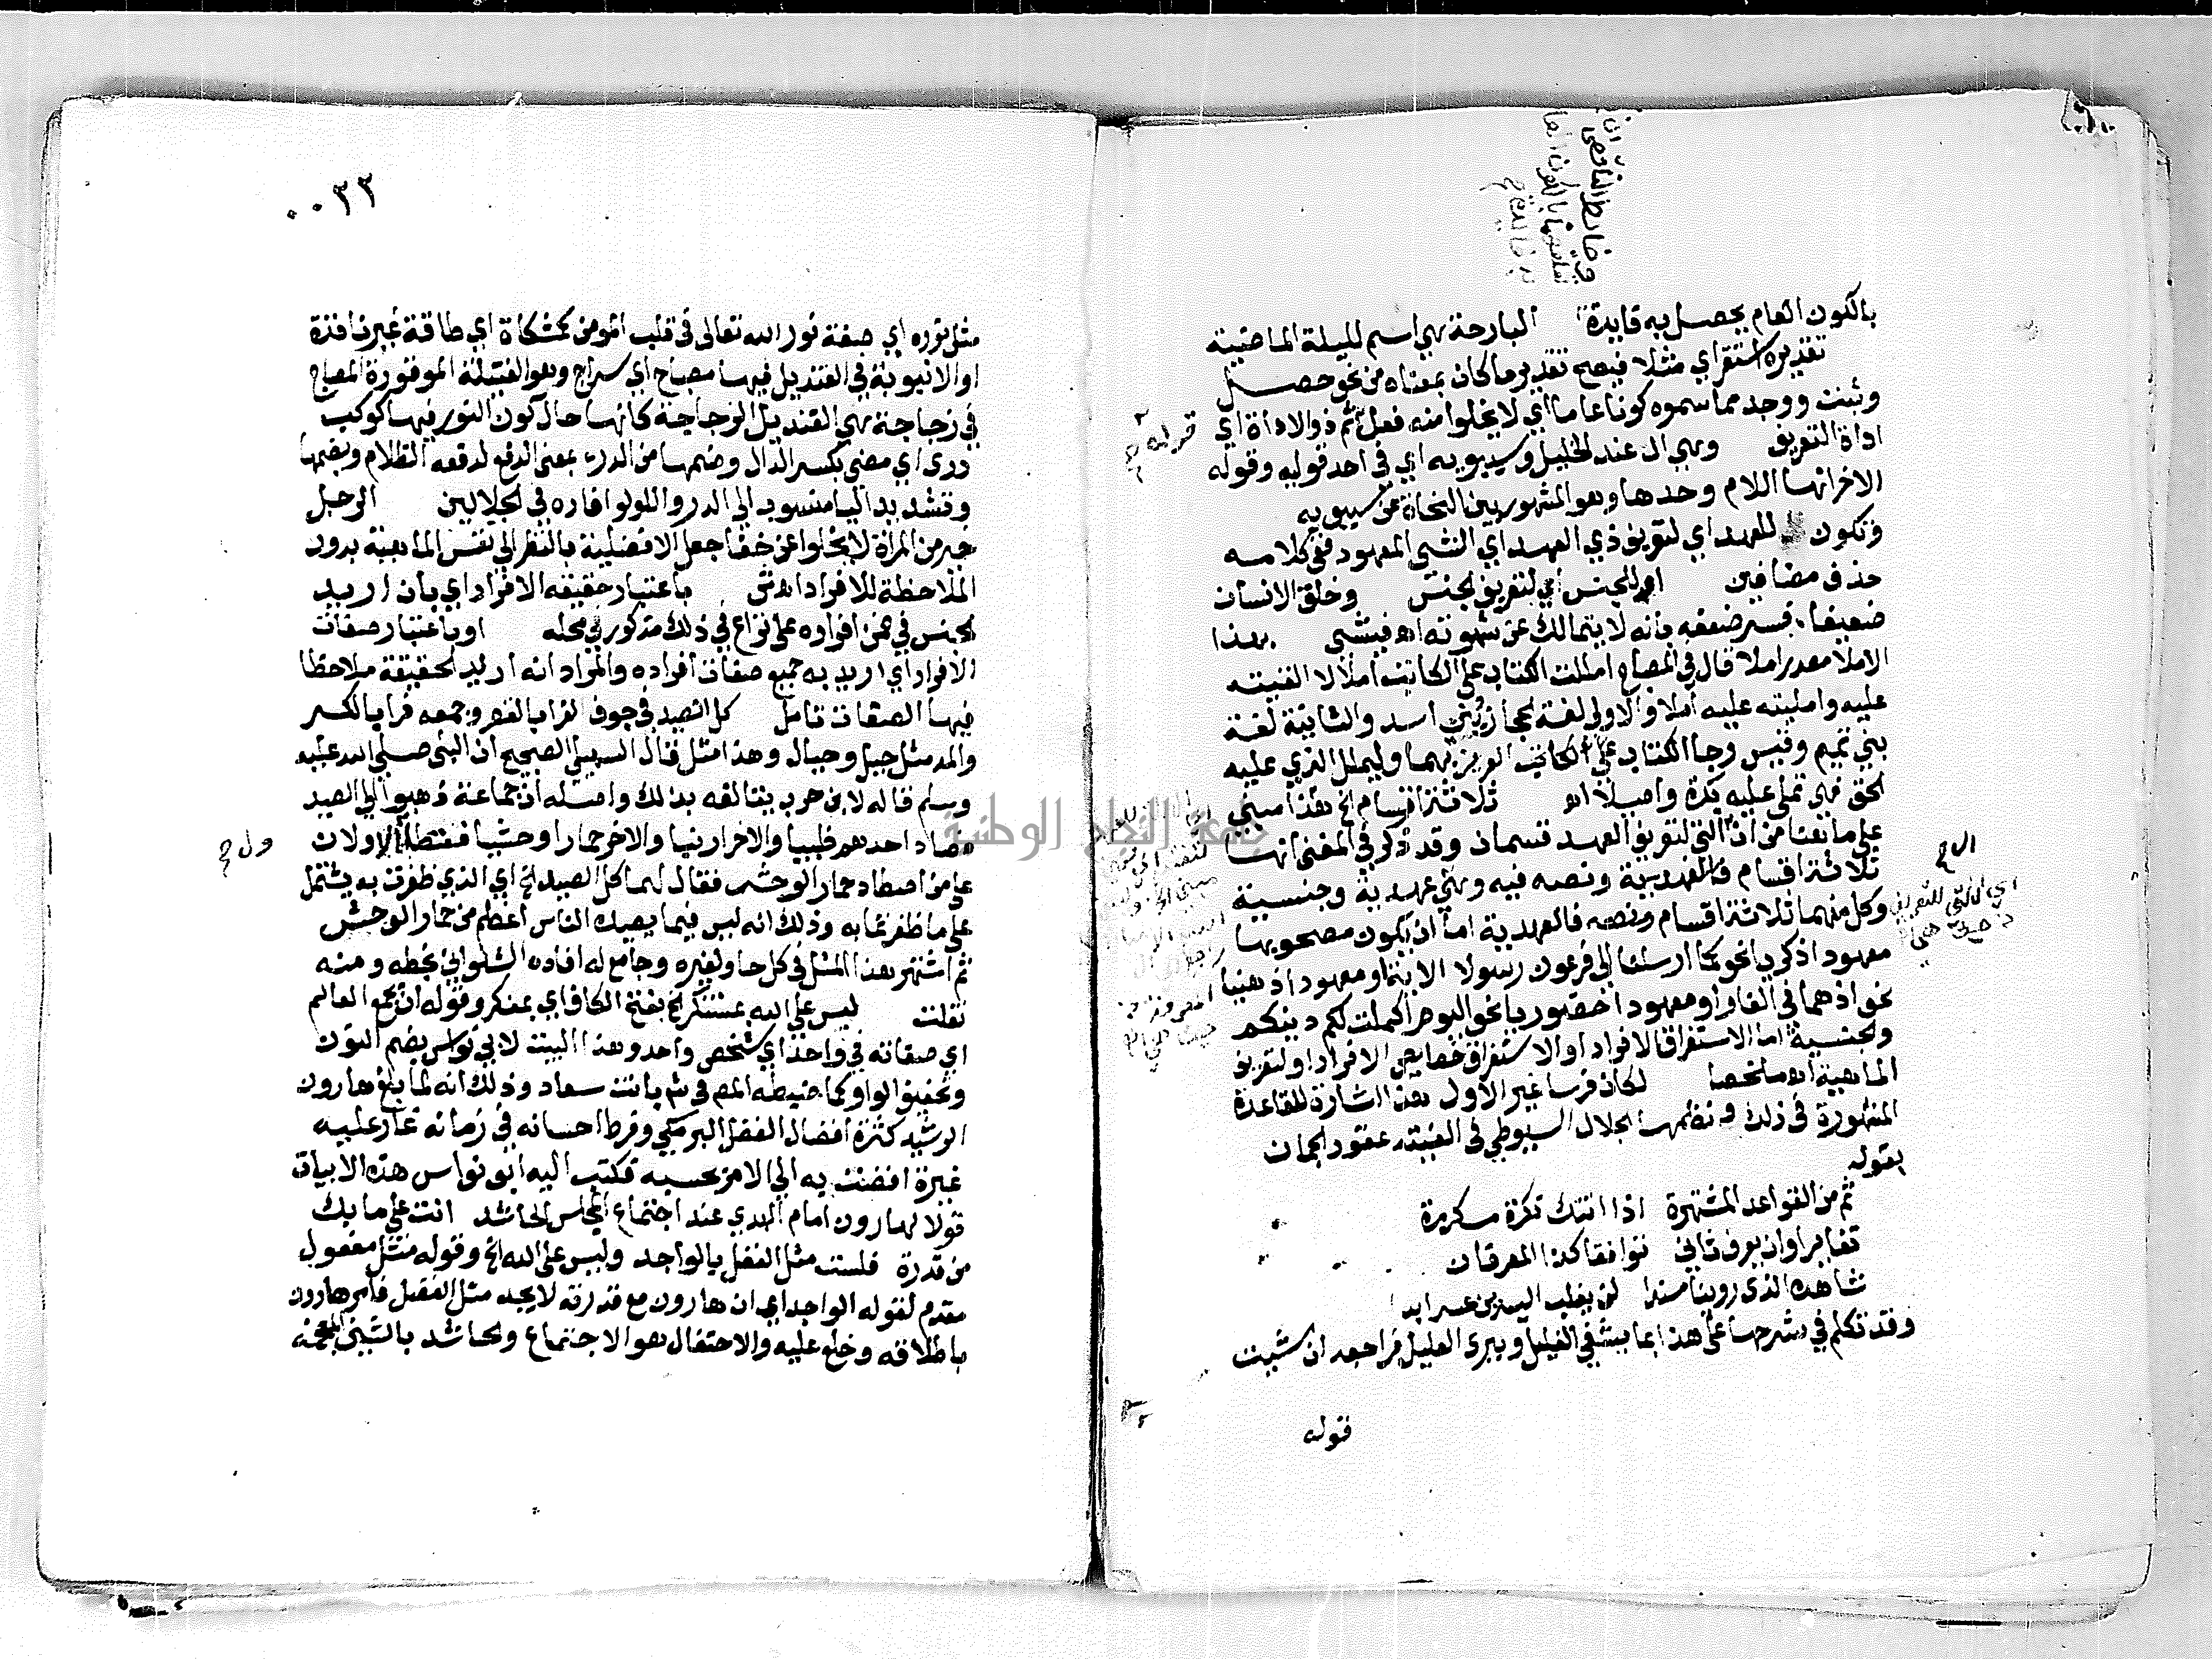 بالكون العام يحصل به فايدة البارحة هي اسم لليلة الماضية
تقديره استقر اي مثلا فيصح تقدير ما كان بمعناه من نحو حصل
وثبت ووجد مما سموه كونا عاما اي لا يخلوا منه فعل ثم ذو الاداة اي
اداة التعريف وهي ال عند الخليل وسيبويه اي في احد قوليه وقوله
الاخر انها اللام وحدها وهو المشهور بين النحاة عن سيبويه
وتكون للعهد اي لتعريف ذي العهد اي الشي المعهود ففي كلامه
حذف مضافين او للجنس اي لتعريف الجنس وخلق الانسان
ضعيفا فسر ضعفه بانه لا يتمالك عن شهوته اه فيشي بهذا
الاملا مصدر املا قال في المصباح امللت الكتاب على الكاتب املالا القيته
عليه وامليته عليه املاء والاولى لغة الحجاز وبني اسد والثانية لغة
بني تميم وقيس وجا الكتاب العزيز بهما وليملل الذي عليه
الحق فهي تملى عليه بكرة واصيلا اه ثلاثة اقسام الخ هذا مبني
على ما هنا من ان التي لتعريف العهد قسمان وقد ذكر في المغني انها
ثلاثة اقسام ونصه فيه وهي عهدية وجنسية
وكل منهما ثلاثة اقسام ونصه فالعهدية اما ان يكون مصحوبها
معهودا ذكريا نحو كما ارسلنا الى فرعون رسولا الاية او معهودا ذهنيا
نحو اذ هما في الغار او معهودا حضوريا نحو اليوم اكملت لكم دينكم
والجنسية اما لاستغراق الافراد او لاستغراق خصايص الافراد او لتعريف
الماهية اه ملخصا لكان فرسا غير الاول هذا اشارة للقاعدة
المشهورة في ذلك ونظمها الجلال السيوطي في الفيته عقود الجمان
بقوله
ثم من القواعد المشتهرة اذا اتتك نكرة مكررة
تغايرا وان يعرف ثاني توافقا كذا المعرفان
شاهده الذي روينا مسندا لن يغلب اليسرين عسر ابدا
وقد تكلم في شرحها على هذا بما يشفي الغليل ويبري العليل فراجعه ان شيت
قوله
٠٠٣٣
مثل نوره اي صفة نور الله تعالى في قلب المومن كمشكاة اي طاقة غير نافذة
او الانبوبة في القنديل فيها مصباح اي سراج وهو الفتيلة الموقودة المصباح
في زجاجة هي القنديل الزجاجة كانها حال كون النور فيها كوكب
دري اي مضي بكسر الدال وضمها من الدرء بمعنى الدفع لدفعه الظلام وبضمها
وتشديد اليا منسوب الى الدر واللولو افاده في الجلالين الرجل
خير من المراة لا يخلوا عن خفا جعل الافضلية بالنظر الى نفس الماهية بدون
الملاحظة للافراد باعتبار حقيقة الافراد اي بان اريد
الجنس في ضمن افراده على نزاع في ذلك مذكور في محله او باعتبار صفات
الافراد اي اريد به جميع صفات افراده والمراد انه اريد الحقيقة ملاحظا
فيها الصفات تامل كل الصيد في جوف الفرا بالفا وجمعه فرا بالكسر
والمد مثل جبل وجبال وهذا مثل قال السهيلي الصحيح ان النبي صلى الله عليه
وسلم قاله لابن حرب يتالفه بذلك واصله ان جماعة ذهبوا الى الصيد
فصاد احدهم ظبيا والاخر ارنبا والاخر حمارا وحشيا فتطاول الاولان
على من اصطاد حمار الوحش فقال لهما كل الصيد الخ اي الذي ظفرت به يشتمل
على ما ظفرتما به وذلك انه ليس فيما يصيده الناس اعظم من حمار الوحش
ثم اشتهر هذا المثل في كل حاو لغيره وجامع له افاده الشلواني بخطه ومنه
نقلت ليس على الله بمستنكر الخ بفتح الكاف اي بمنكر وقوله ان يجمع العالم
اي صفاته في واحد اي شخص واحد وهذا البيت لابي نواس بضم النون
وتخفيف الواو كما ضبطه المص في شرح بانت سعاد وذلك انه لما بلغ هارون
الرشيد كثرة افضال الفضل البرمكي وفرط احسانه في زمانه غار عليه
غيرة افضت به الى الامر بحبسه فكتب اليه ابو نواس هذه الابيات
قولا لهارون امام الهدى عند اجتماع المجلس الحاشد انت على ما بك
من قدرة فلست مثل الفضل بالواجد وليس على الله الخ وقوله مثل مفعول
مقدم لقوله الواجد اي ان هارون مع قدرته لا يجد مثل الفضل فامر هارون
باطلاقه وخلع عليه والاحتفال هو الاجتماع والحاشد بالشين المعجمة
جامعة النجاح الوطنية